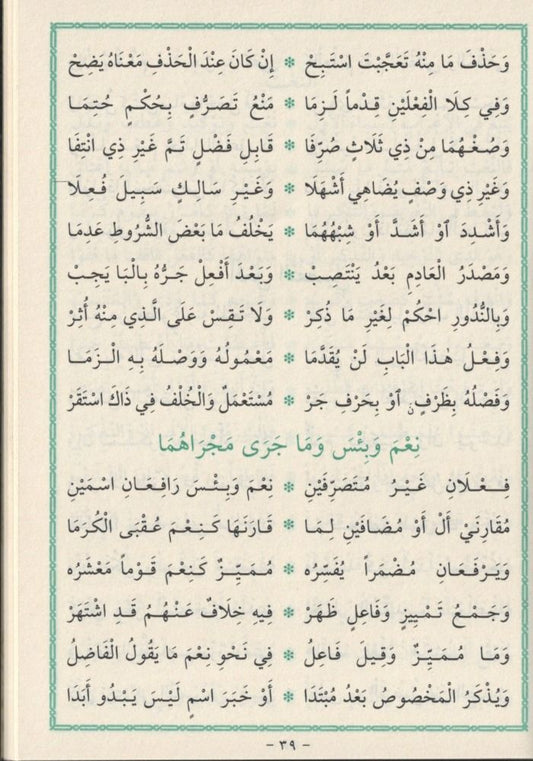 وَحَذْفَ مَا مِنْهُ تَعَجَّبْتَ اسْتَبِحْ * إِنْ كَانَ عِنْدَ الْحَذْفِ مَعْنَاهُ يَضِحْ
وَفِي كِلَا الْفِعْلَيْنِ قِدْماً لَزِمَا * مَنْعُ تَصَرُّفٍ بِحُكْمٍ حُتِمَا
وَصُغْهُمَا مِنْ ذِي ثَلَاثٍ صُرِّفَا * قَابِلِ فَضْلٍ تَمَّ غَيْرِ ذِي انْتِفَا
وَغَيْرِ ذِي وَصْفٍ يُضَاهِي أَشْهَلَا * وَغَيْرِ سَالِكٍ سَبِيلَ فُعِلَا
وَأَشْدِدَ اَوْ أَشَدَّ أَوْ شِبْهُهُمَا * يَخْلُفُ مَا بَعْضَ الشُّرُوطِ عَدِمَا
وَمَصْدَرُ الْعَادِمِ بَعْدُ يَنْتَصِبْ * وَبَعْدَ أَفْعِلْ جَرُّهُ بِالْبَا يَجِبْ
وَبِالنُّدُورِ احْكُمْ لِغَيْرِ مَا ذُكِرْ * وَلَا تَقِسْ عَلَى الَّذِي مِنْهُ أُثِرْ
وَفِعْلُ هٰذَا الْبَابِ لَنْ يُقَدَّمَا * مَعْمُولُهُ وَوَصْلَهُ بِهِ الْزَمَا
وَفَصْلُهُ بِظَرْفٍ اَوْ بِحَرْفِ جَرْ * مُسْتَعْمَلٌ وَالْخُلْفُ فِي ذَاكَ اسْتَقَرْ
نِعْمَ وَبِئْسَ وَمَا جَرَى مَجْرَاهُمَا
فِعْلَانِ غَيْرُ مُتَصَرِّفَيْنِ * نِعْمَ وَبِئْسَ رَافِعَانِ اسْمَيْنِ
مُقَارِنَيْ أَلْ أَوْ مُضَافَيْنِ لِمَا * قَارَنَهَا كَنِعْمَ عُقْبَى الْكُرَمَا
وَيَرْفَعَانِ مُضْمَراً يُفَسِّرُه * مُمَيِّزٌ كَنِعْمَ قَوْماً مَعْشَرُه
وَجَمْعُ تَمْيِيزٍ وَفَاعِلٍ ظَهَرْ * فِيهِ خِلَافٌ عَنْهُمُ قَدِ اشْتَهَرْ
وَمَا مُمَيِّزٌ وَقِيلَ فَاعِلُ * فِي نَحْوِ نِعْمَ مَا يَقُولُ الْفَاضِلُ
وَيُذْكَرُ الْمَخْصُوصُ بَعْدُ مُبْتَدَا * أَوْ خَبَرَ اسْمٍ لَيْسَ يَبْدُو أَبَدَا
- ٣٩ -